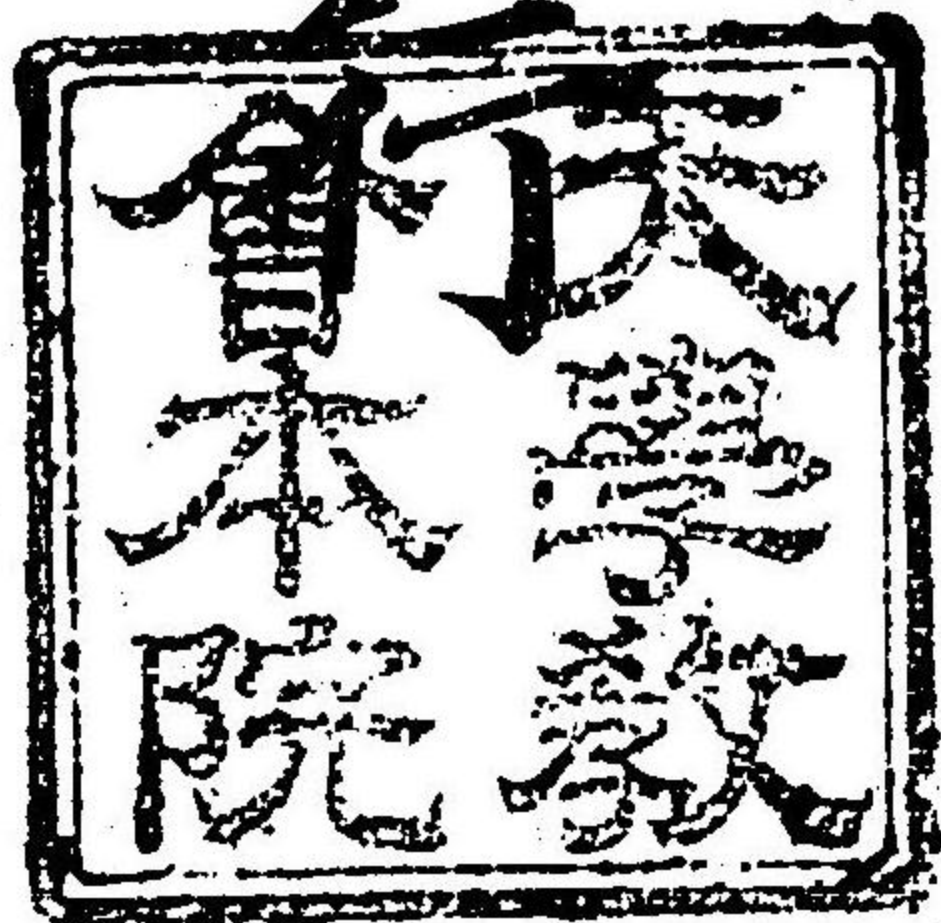 天學教
會本院